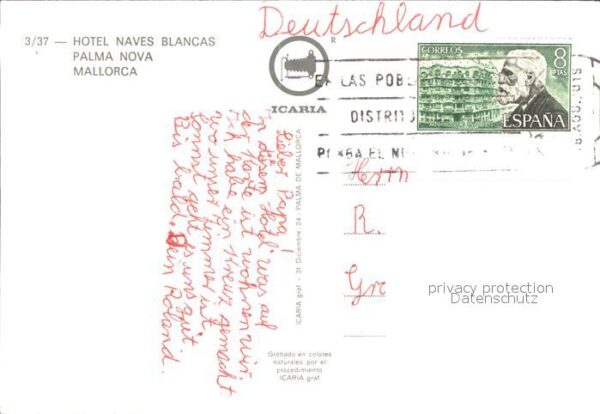 Deutschland
3/37 — HOTEL NAVES BLANCAS
PALMA NOVA
MALLORCA
R
ICARIA
CORREOS
8
PTAS
ESPAÑA
LAS POB
DISTRIT
EL N
Lieber Papa!
In diesem Hotel was auf
der Karte ist wohnen wir
Ich habe ein Kreuz gemacht
wo unser Zimmer ist
Sonst geht es uns gut
Bis bald. Dein Roland.
ICARIA graf - 31 Diciembre, 24 - PALMA DE MALLORCA
Herrn
R.
Gr
privacy protection
Datenschutz
Grabado en colores
naturales por el
procedimiento
ICARIA graf